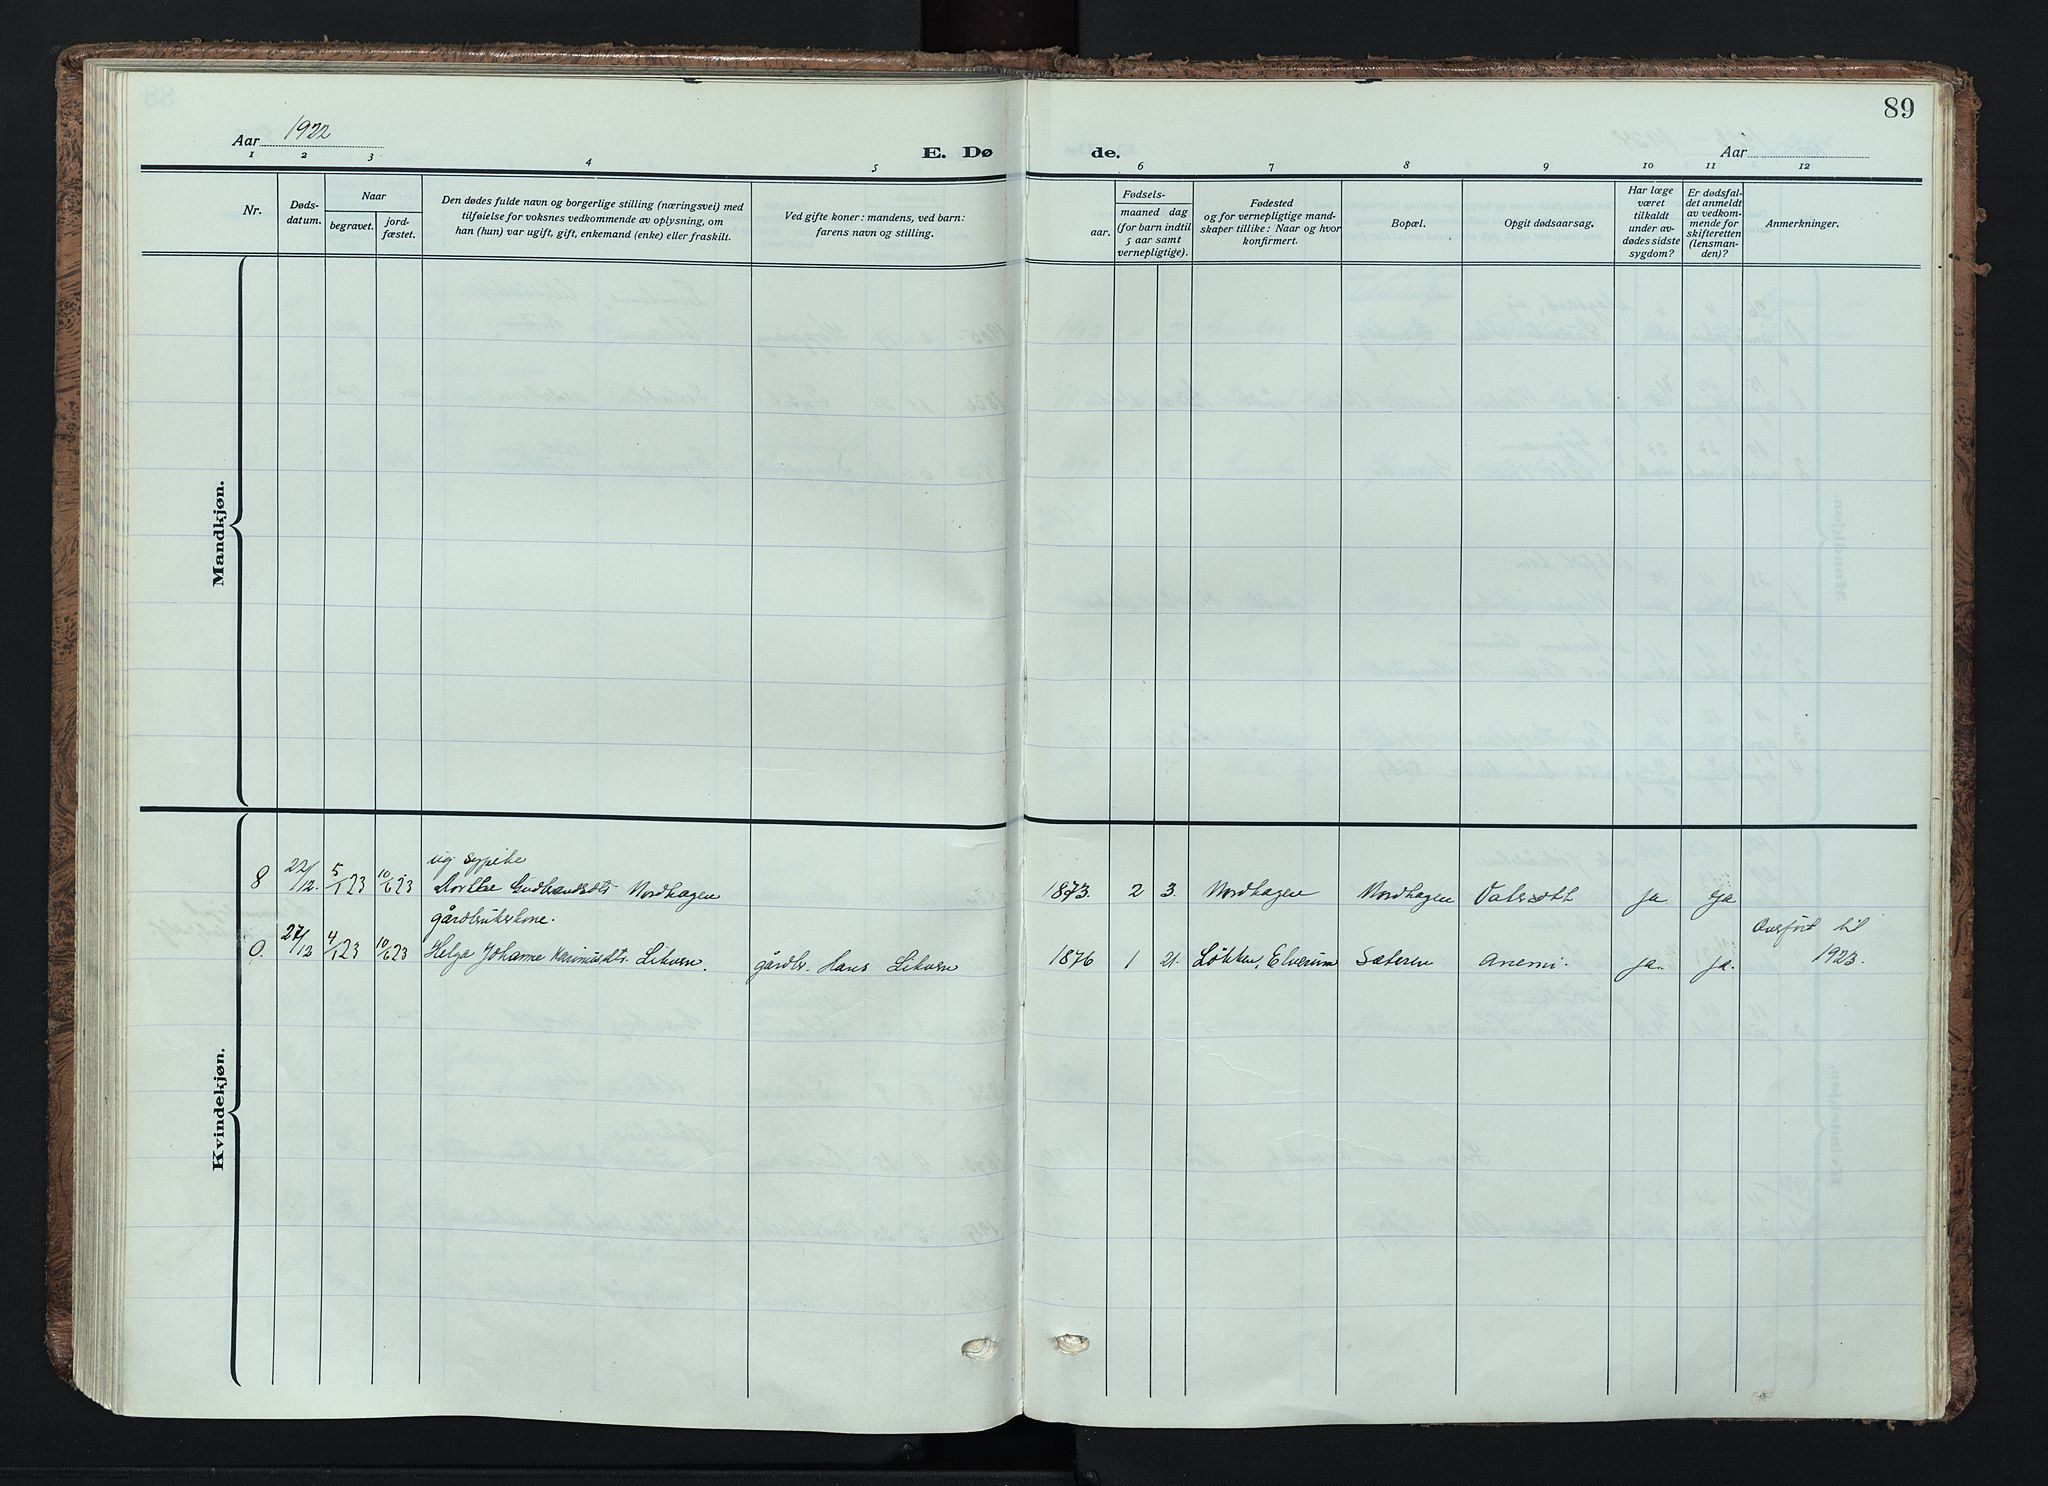 89
Aar 1922
E. Døde.
Aar
1 2 3 4 5 6 7 8 9 10 11 12
Nr.
Døds-
datum.
Naar
begravet.
jord-
fæstet.
Den dødes fulde navn og borgerlige stilling (næringsvei) med
tilføielse for voksnes vedkommende av oplysning, om
han (hun) var ugift, gift, enkemand (enke) eller fraskilt.
Ved gifte koner: mandens, ved barn:
farens navn og stilling.
Fødsels-
aar.
maaned dag
(for barn indtil
5 aar samt
vernepligtige).
Fødested
og for vernepligtige mand-
skaper tillike: Naar og hvor
konfirmert.
Bopæl.
Opgit dødsaarsag.
Har læge
været
tilkaldt
under av-
dødes sidste
sygdom?
Er dødsfal-
det anmeldt
av vedkom-
mende for
skifteretten
(lensman-
den)?
Anmerkninger.
Mandkjøn.
Kvindekjøn.
ug sypike
8 22/12. 5/1 23 10/6 23 Dorthe Gudbrandsdtr Nordhagen 1873. 2 3. Nordhagen Nordhagen ja ja
gårdbrukerkone.
Overført til
0. 27/12 4/1 23 10/6 23 Helga Johanne Lekven. gårdbr. Hans Lekven 1876 1 21. Løkken, Elverum Sæteren Anemi. ja. ja. 1923.